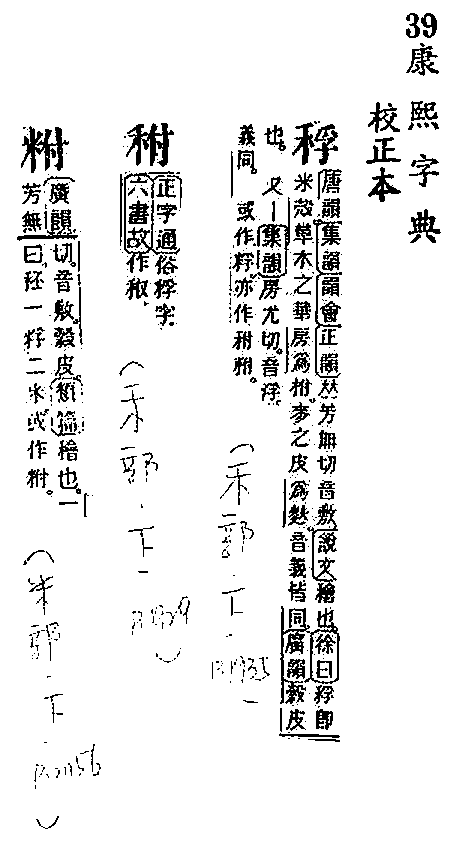 39
康熙字典
校正本
稃
唐韻集韻韻會正韻𠀤芳無切音敷說文𥢶也徐曰稃卽
米殼草木之華房爲柎麥之皮爲麩音義皆同廣韻穀皮
也。又丨集韻房尤切。音浮
義同。或作粰亦作
正字通俗稃字
六書故作
(禾部.下-
P.1935)
(禾部.下-
P.1939)
廣韻
芳無
切。音敷。穀皮。類篇𥢶也。一
曰秠一稃二米或作
(米部.下-
P.2156)